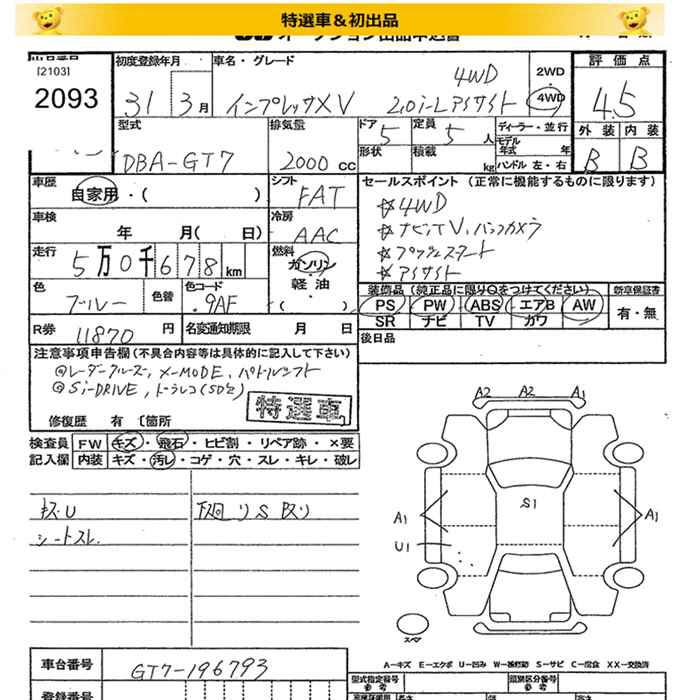 特選車＆初出品
[2103]
2093
初度登録年月
31 3月
車名・グレード
4WD
インプレッサXV 2.0i-Lアイサイト
2WD
4WD
評価点
4.5
外装 内装
B B
型式
DBA-GT7
排気量
2000cc
ドア 5
定員 5人
形状
積載 kg
ディーラー・並行
モデル年式 年
ハンドル 左・右
車歴
自家用・( )
シフト
FAT
セールスポイント (正常に機能するものに限ります)
☆4WD
☆ナビTV、バックカメラ
☆プッシュスタート
☆アイサイト
車検
年 月( 日)
冷房
AAC
走行
5万0千678km
燃料
ガソリン
軽油
( )
色
ブルー
色替
色コード
9AF
装備品 (純正品に限り○をつけてください)
PS PW ABS エアB AW
SR ナビ TV カワ
新車保証書
有・無
R券
11870円
名変通知期限 月 日
後日品
注意事項申告欄 (不具合内容等は具体的に記入して下さい)
◎レーダークルーズ, X-MODE, パドルシフト
◎Si-DRIVE, ドラレコ(SD欠)
特選車
修復歴 有 〔箇所
検査員記入欄
FW キズ・飛石・ヒビ割・リペア跡・×要
内装 キズ・汚レ・コゲ・穴・スレ・キレ・破レ
キズU
シートスレ
下廻りS 反り
A2 A2 A1
A1 S1 A1
U1
スペア
A―キズ E―エクボ U―凹み W―補修跡 S―サビ C―腐食 XX―交換済
車台番号
GT7-196793
型式指定番号
類別区分番号
参考
登録番号
長さ